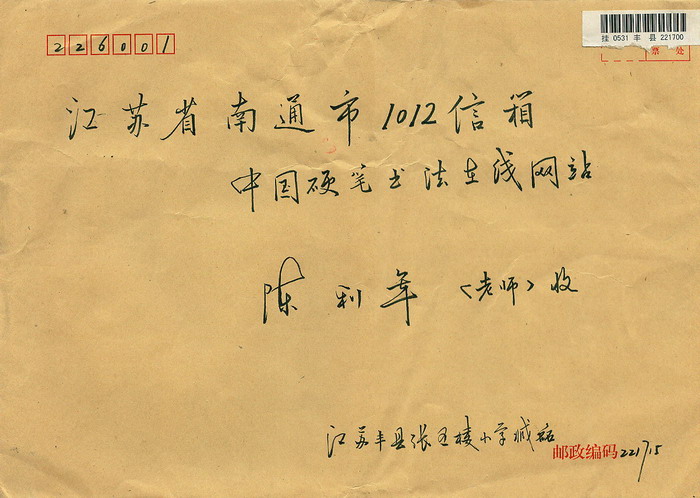 226001
挂 0531 丰 县 221700
票 处
江苏省南通市1012信箱
中国硬笔书法在线网站
陈利年（老师）收
江苏丰县张五楼小学臧磊
邮政编码 221715